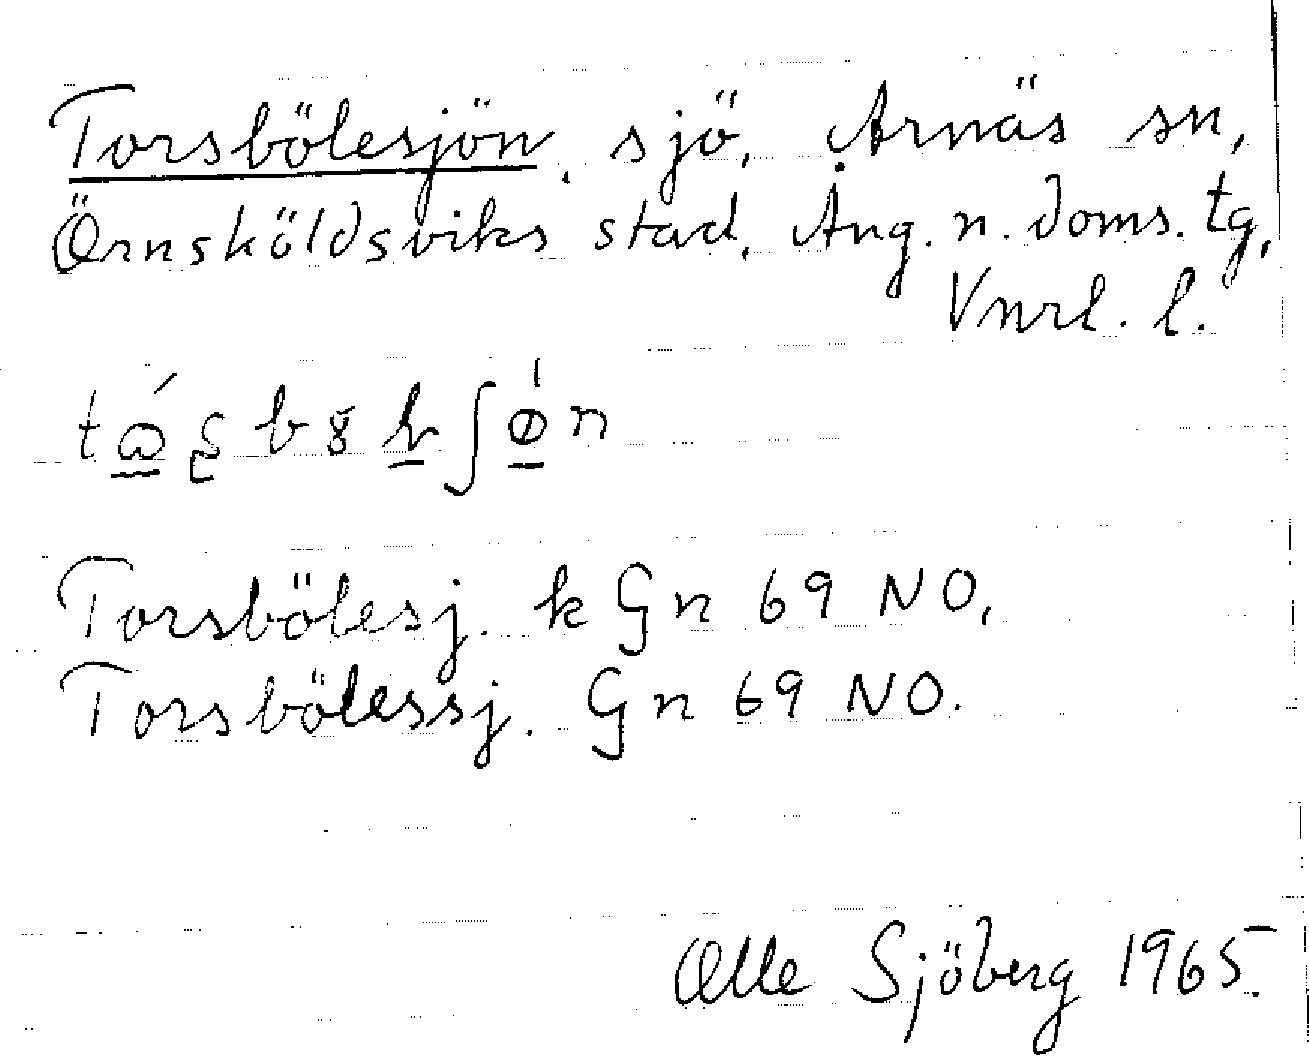 Torsbölesjön, sjö, Arnäs sn,
Örnsköldsviks stad, Ång. n. doms. tg,
Vnrl. l.
Torsbölesj. k Gn 69 NO,
Torsbölessj. Gn 69 NO.
Olle Sjöberg 1965.